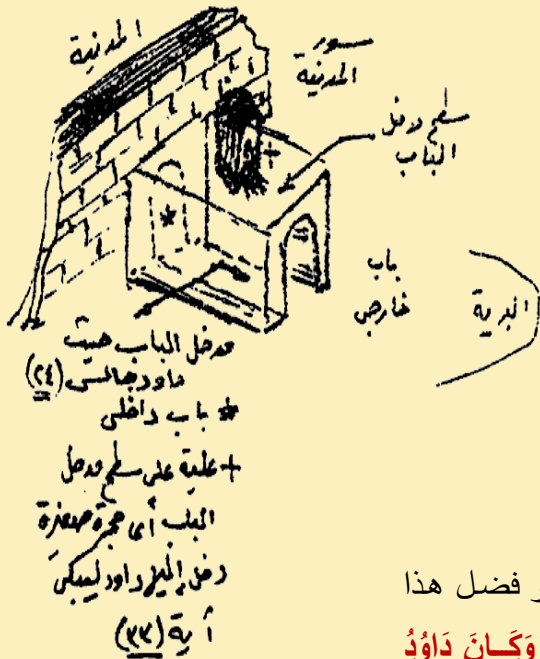 المدينة
سور
المدينة
سطح مدخل
الباب
باب
خارجي
البرية
مدخل الباب حيث
داود جالس (٢٤)
* باب داخلى
+ علية على سطح مدخل
الباب أى حجرة صغيرة
دخل إليها داود ليبكى
أية (٣٣)
فضل هذا
وَكَـانَ دَاوُدُ